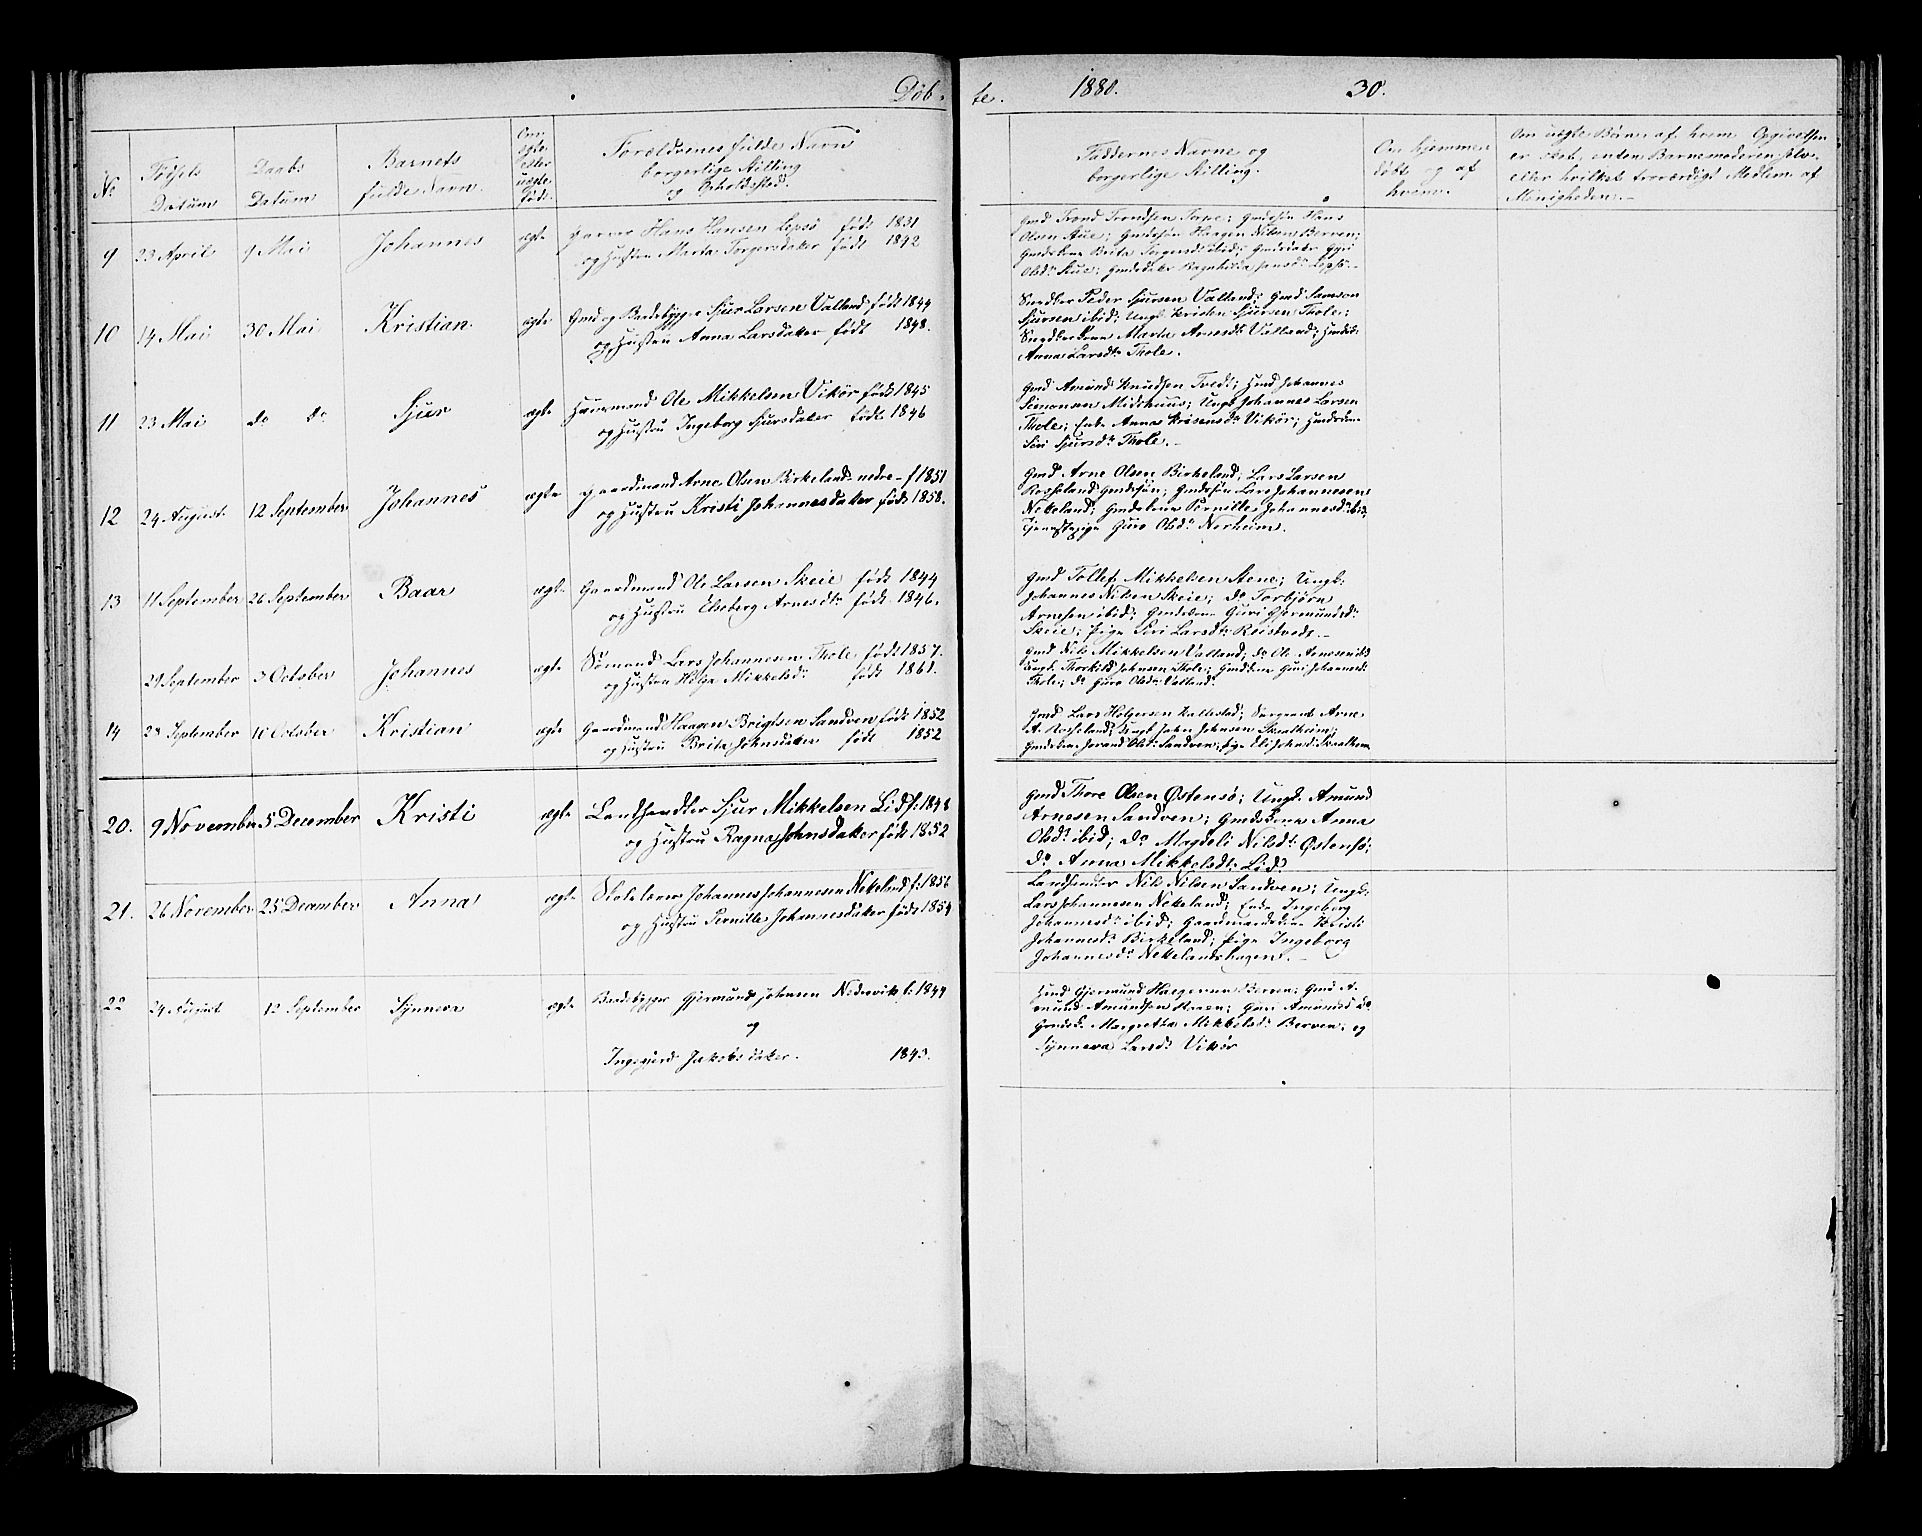 Döb-
te. 1880. 30.
No
Födsels Datum
Daabs Datum
Barnets fulde Navn.
Om ægte eller uægte födt.
Forældrenes fulde Navn
borgerlige Stilling
og Opholdssted.
Faddernes Navne og
borgerlige Stilling.
Om hjemmedöbt og af hvem.
Om uægte Börn af hvem Opgivelsen
er sket, enten Barnemoderen selv
eller hvilket troværdigt Medlem af
Menigheden.
9 23 April 9 Mai Johannes ægte Hans Hansen Lepsö födt 1831
og Hustru Marta Torgersdater födt 1842
Gmd Trond Trondsen Torpe; Gmdsön Hans
Olsen Aue; Gmdsön Haagen Nilsen Berven;
Gmdskone Brita Torgersdr ibid; Gmdsdater Guri
Olsdr Aue; Gmdsdater Ragnhilda Hansdr Lepsö.
10 14 Mai 30 Mai Kristian ægte Gmd og Baadebygger Sjur Larsen Valland födt 1844
og Hustru Anna Larsdater födt 1848.
Snedker Peder Sjursen Valland; Gmd Samson
Sjursen ibid; Ungk. Kristen Sjursen Thole;
Snedkerkone Marta Arnesdr Valland;
Anna Larsdr Thole.
11 23 Mai do do Sjur ægte Huusmand Ole Mikkelsen Vikör födt 1845
og Hustru Ingeborg Sjursdater födt 1846
Gmd Amund Knudsen Tvedt; Hmd Johannes
Simonsen Midthuus; Ungk Johannes Larsen
Thole; Enke Anna Vikör;
Siri Sjursdr Thole.
12 24 August 12 September Johannes ægte Gaardmand Arne Olsen Birkeland nedre f 1851
og Hustru Kristi Johannesdater födt 1858.
Gmd Arne Olsen Birkeland; Lars Larsen
Rosseland Gmdsön; Gmdsön Lars Johannesen
Nekeland; Gmdskone Pernille Johannesdr ibid;
Tjenestepige Guro Olsdr Norheim.
13 11 September 26 September Baar ægte Gaardmand Ole Larsen Skeie födt 1844
og Hustru Elseberg Arnesdtr födt 1846.
Gmd Tollef Mikkelsen Stene; Ungk.
Johannes Nilsen Skeie; do Torbjörn
Arnesen ibid; Gmdskone Guri Gjermundsdr
Skeie; Pige Siri Larsdr Reistvedt.
29 September 3 October Johannes ægte Sömand Lars Johannesen Thole födt 1857.
og Hustru Helga Mikkelsdr födt 1861.
Gmd Nils Mikkelsen Valland; do Ole Arnesen ibid
Ungk Thorkild Johnsen Thole; Gmdskone Guri Johannesdr
Thole; do Guro Olsdr Valland.
14 September October Kristian ægte Gaardmand Haagen Brigtsen Sandven födt 1852
og Hustru Brita Johnsdater födt 1852
Gmd Lars Holgersen Kallestad; Sergeant Arne
A. Rosseland; Ungk John Johnsen Skaalheim;
Gmdskone Jorand Olsdr Sandven; Pige Eli Johnsdr Skaalheim
20. 9 November 5 December Kristi ægte Landhandler Sjur Mikkelsen Lid f. 1848
og Hustru Ragna Johnsdater födt 1852
Gmd Thore Olsen Östensö; Ungk. Amund
Arnesen Sandven; Gmdskone Anna
Olsdr ibid; do Magdeli Nilsdr Östensö;
do Anna Mikkelsdr Lid
21. 26 November 25 December Anna ægte Skolelærer Johannes Johannesen Nekeland f: 1856
og Hustru Pernille Johannesdater födt 1854
Landhandler Nils Nilsen Sandven; Ungk.
Lars Johannesen Nekeland; Enke Ingeborg
Johannesdr ibid; Gaardmandskone Kristi
Johannesdr Birkeland; Pige Ingeborg
Johannesdr Nekelandshagen.
22 24 August 12 September Synneva ægte Baadebygger Gjermund Johnsen Nedrevik f: 1844
og
Ingegjerd Jakobsdater. 1843.
Hmd Gjermund Haagensen Berven; Gmd A-
mund Amundsen; Guri Amundsd do
Gmdsk. Margretha Mikkelsdr Berven; og
Synneva Larsdr Vikör